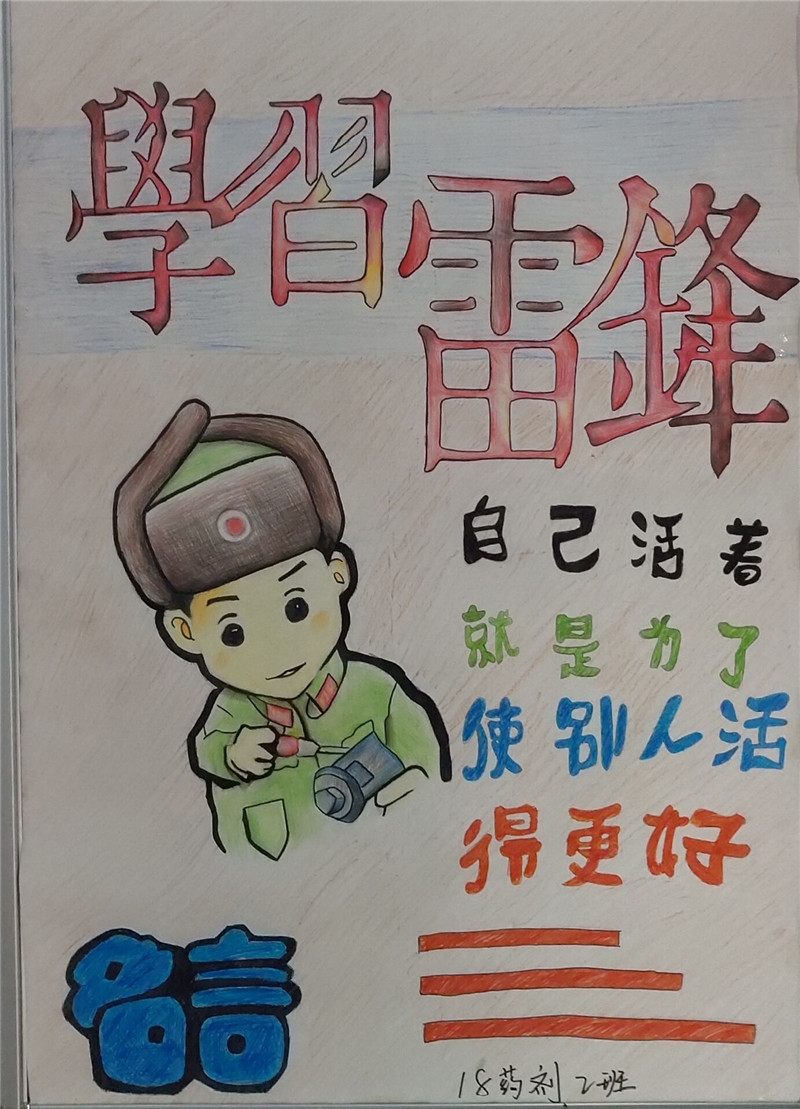 學習
雷鋒
自己活着
就是为了
使别人活
得更好
名言
18药剂2班